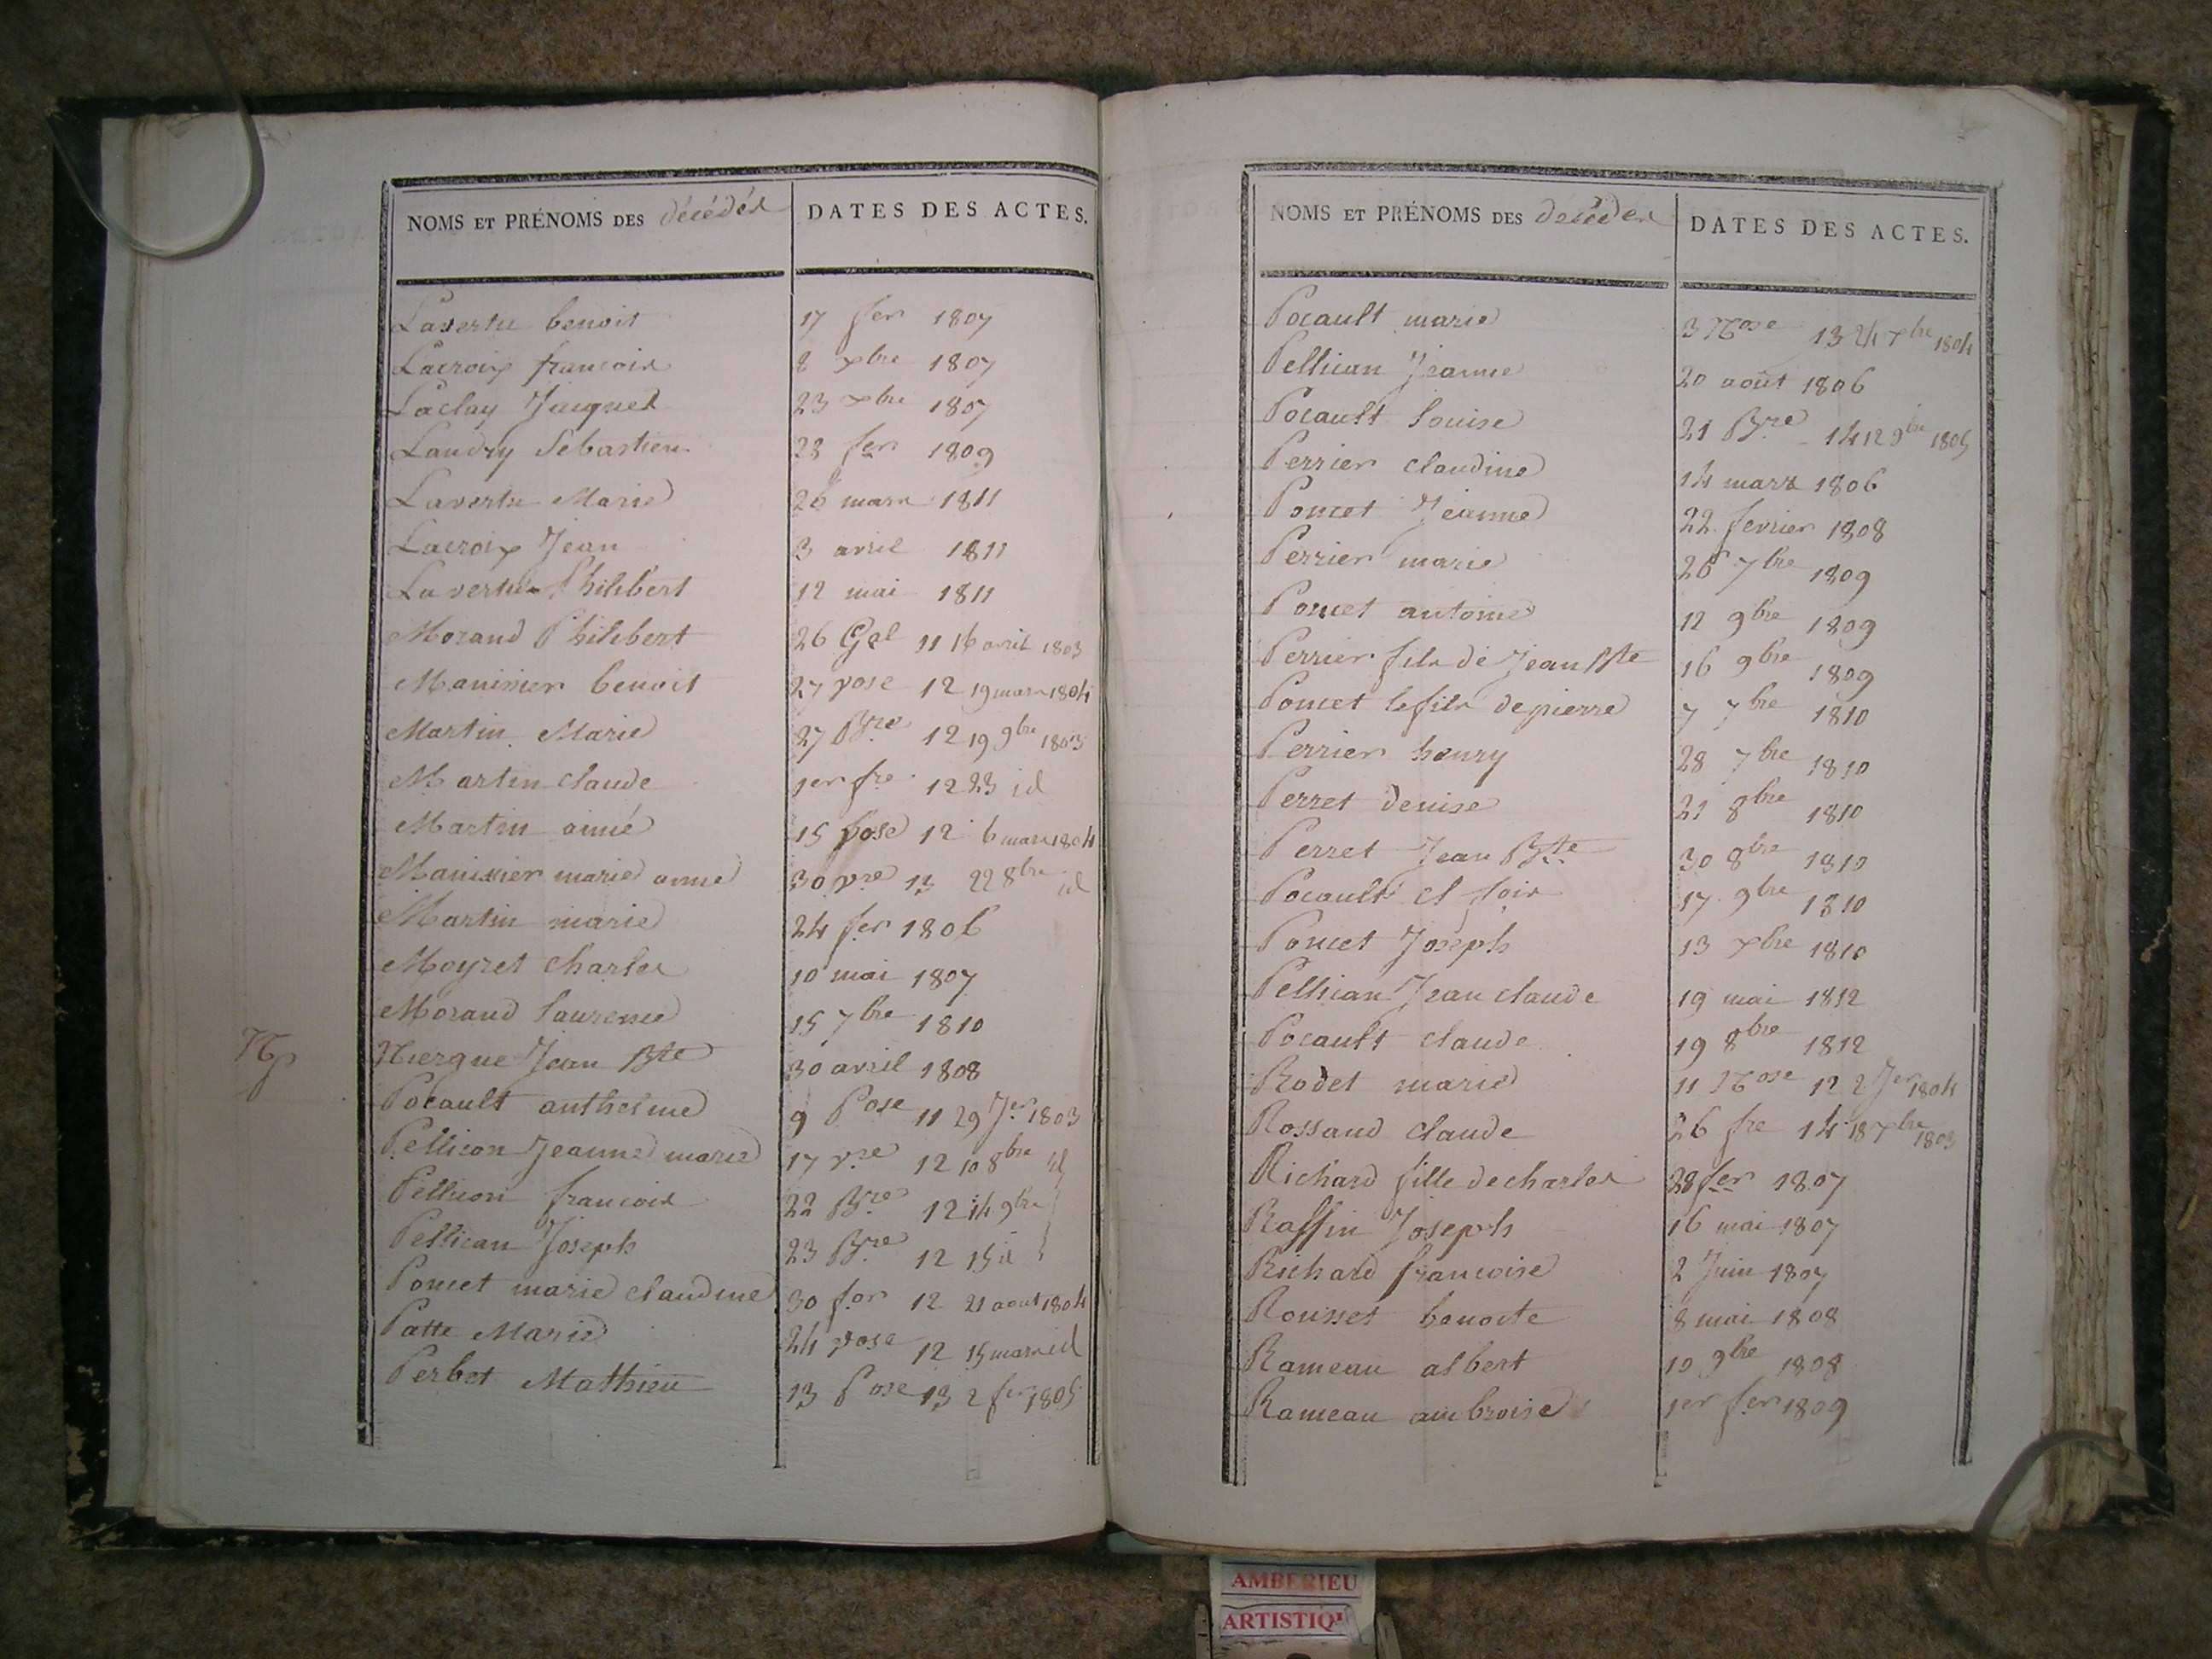 NOMS ET PRÉNOMS DES décédés DATES DES ACTES.
Lavertu benoit 17 fer 1807
Lacroix francois 8 xbre 1807
Laclay Jacques 23 xbre 1807
Landry Sebastien 28 fer 1809
Lavertu Marie 26 mars 1811
Lacroix Jean 3 avril 1811
Lavertu Philibert 12 mai 1811
Morand Philibert 26 Gal 11 16 avril 1803
Manissier benoit 27 vose 12 19 mars 1804
Martin Marie 27 Bre 12 19 9bre 1803
Martin claude 1er fre 12 23 id
Martin aimé 15 vose 12 6 mars 1804
Manissier marie anne 30 vre 13 22 8bre id
Martin marie 24 fer 1806
Moyret charles 10 mai 1807
Morand laurence 15 7bre 1810
Niergue Jean Bte 30 avril 1808
Pocault anthelme 9 Pose 11 29 Jer 1803
Pellicon Jeanne marie 17 vre 12 10 8bre id
Pellicon francois 22 Bre 12 14 9bre
Pellican Joseph 23 Bre 12 15 id
Poncet marie claudine 30 for 12 21 aout 1804
Patte Marie 24 vose 12 15 mars id
Perbet Mathieu 13 Pose 13 2 fer 1805
NOMS ET PRÉNOMS DES décédés DATES DES ACTES.
Pocault marie 3 Nose 13 24 xbre 1804
Pellican Jeanne 20 août 1806
Pocault louise 21 Bre 14 12 9bre 1805
Perrier claudine 14 mars 1806
Poncet Jeanne 22 fevrier 1808
Perrier marie 26 7bre 1809
Poncet antoine 12 9bre 1809
Perrier fils de Jean Bte 16 9bre 1809
Poncet le fils de pierre 7 7bre 1810
Perrier henry 28 7bre 1810
Perret denise 21 8bre 1810
Perret Jean Bte 30 8bre 1810
Pocault cl fois 17 9bre 1810
Poncet Joseph 13 xbre 1810
Pellican Jean claude 19 mai 1812
Pocault claude 19 8bre 1812
Rodet marie 11 Nose 12 2 Jer 1804
Rossand claude 26 fre 14 18 xbre 1803
Richard fille de charles 28 fer 1807
Raffin Joseph 16 mai 1807
Richard francoise 2 Juin 1807
Rousset benoite 8 mai 1808
Rameau albert 10 9bre 1808
Rameau ambroise 1er fer 1809
AMBERIEU
ARTISTIQ